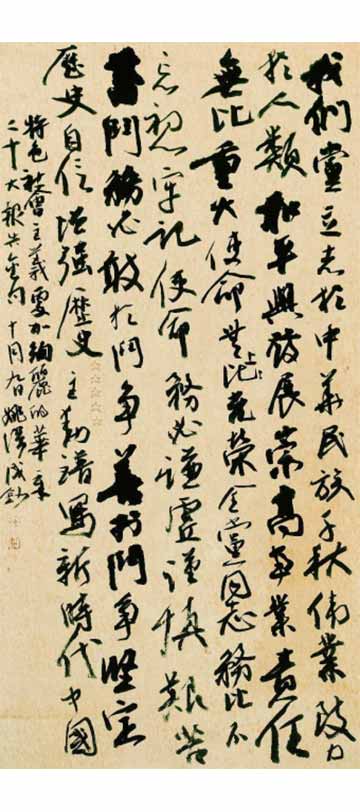 我們黨立志於中華民族千秋偉業致力
於人類和平與發展崇高事業責任
無比重大使命無比上光榮全黨同志務比不
忘初心牢記使命務必謙虛謹慎艱苦
奮鬥務必敢於鬥爭善於鬥爭堅定
歷史自信增強歷史主動譜寫新時代中國
特色社會主義更加絢麗的華章
二十大報告金句十月